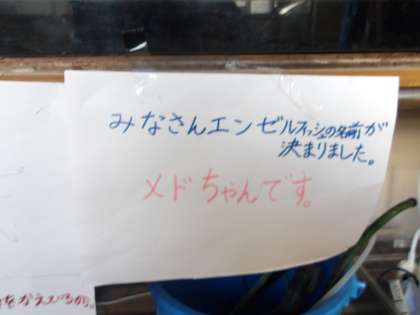 みなさんエンゼルフィッシュの名前が
決まりました。
メドちゃんです。
をかえているから。